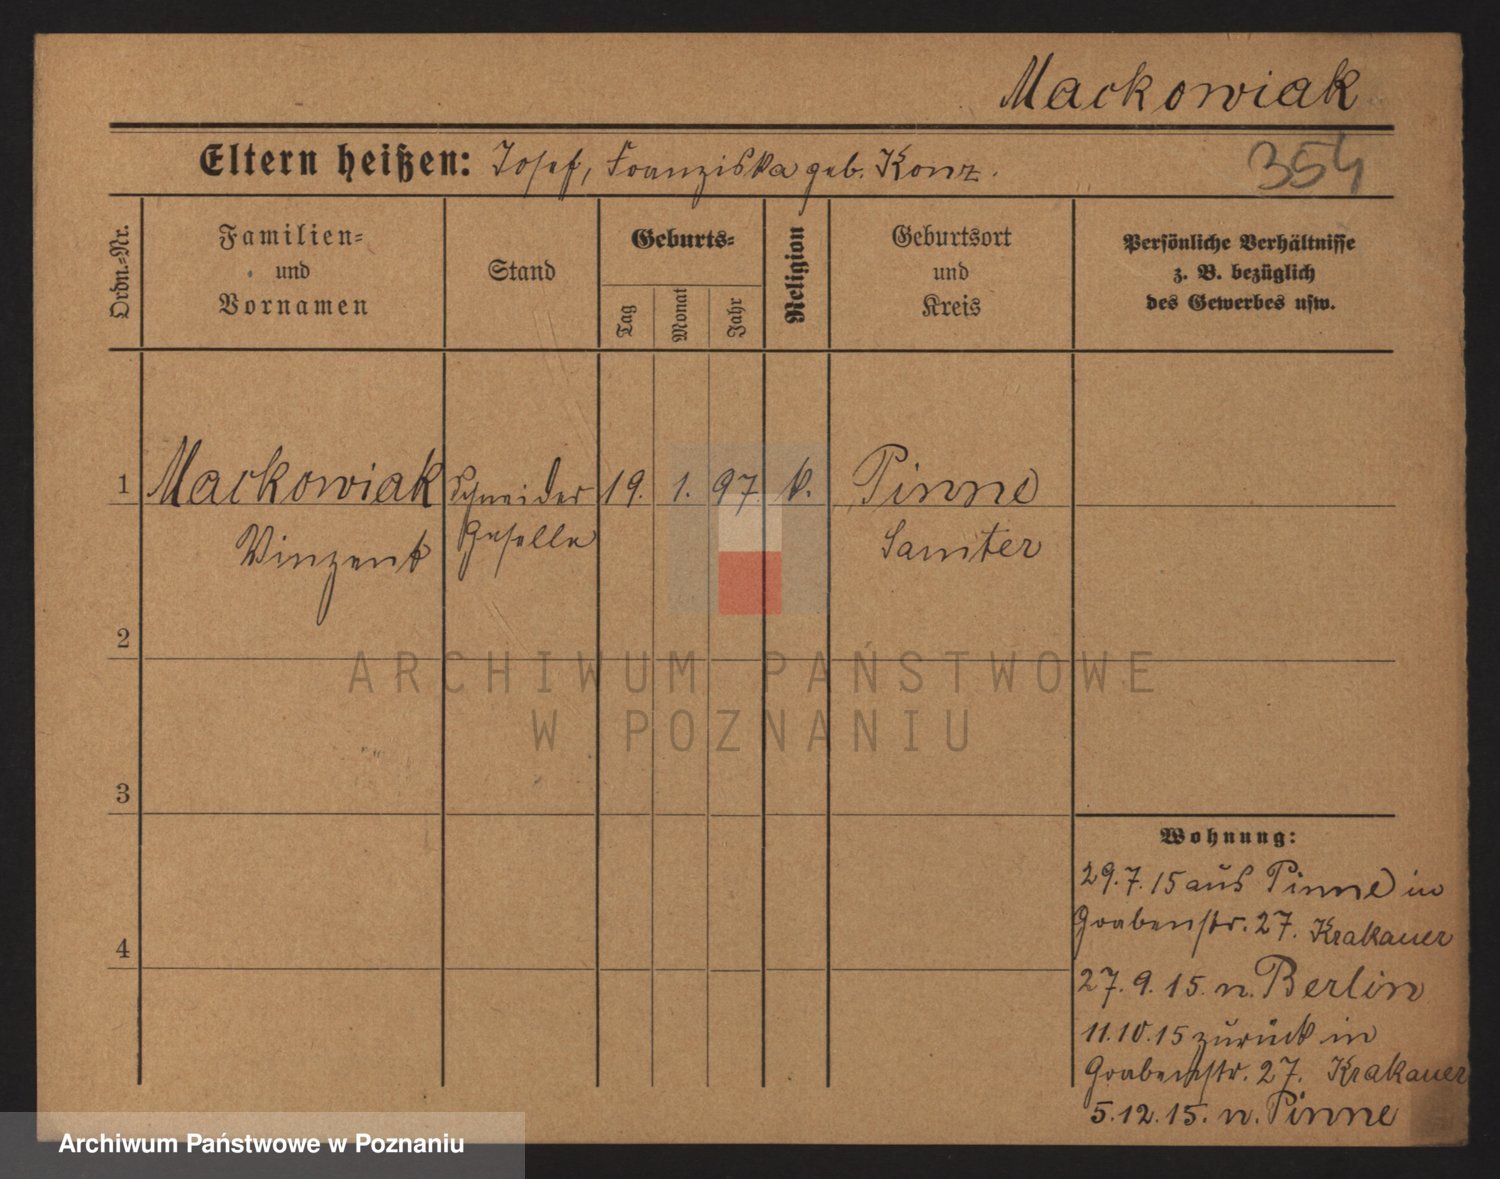 Mackowiak
Eltern heißen: Josef, Franziska geb. Konz.
354
Ordn.-Nr.
Familien-
und
Vornamen
Stand
Geburts-
Tag
Monat
Jahr
Religion
Geburtsort
und
Kreis
Persönliche Verhältnisse
z. B. bezüglich
des Gewerbes usw.
1 Mackowiak Schneider 19. 1. 97. k. Pinne
Vinzent Geselle Samter
2
ARCHIWUM PAŃSTWOWE
W POZNANIU
3
Wohnung:
29.7.15 aus Pinne in
Grabenstr. 27. Krakauer
4
27.9.15. n. Berlin
11.10.15 zurück in
Grabenstr. 27. Krakauer
5.12.15. n. Pinne
Archiwum Państwowe w Poznaniu